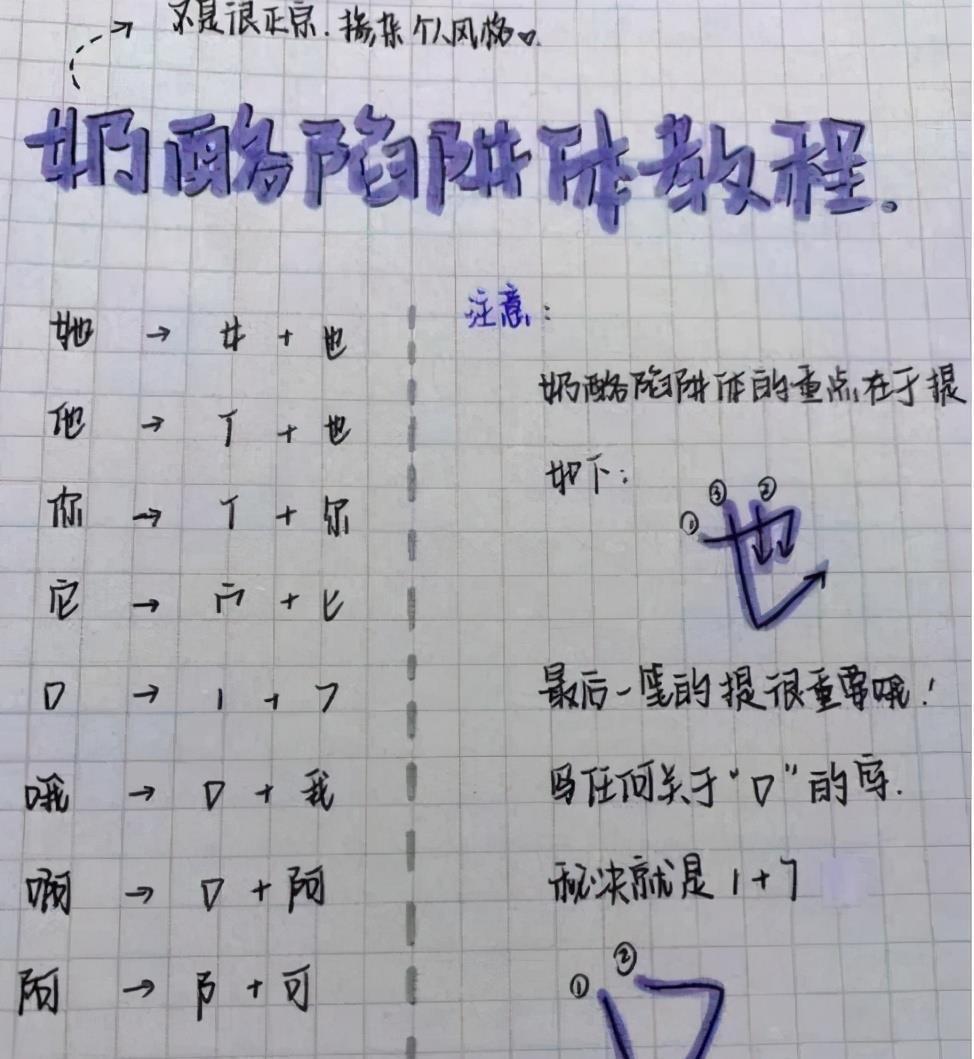 不是很正宗.掺杂个人风格
奶酪陷阱体教程.
她 → 女 + 也
他 → 亻 + 也
你 → 亻 + 尔
它 → 宀 + 匕
口 → 丨 + ㇕
哦 → 口 + 我
啊 → 口 + 阿
阿 → 阝 + 可
注意:
奶酪陷阱体的重点在于提
如下:
① ③ ②
也
最后一笔的提很重要哦!
写任何关于“口”的字.
秘决就是 丨+㇕
① ②
口